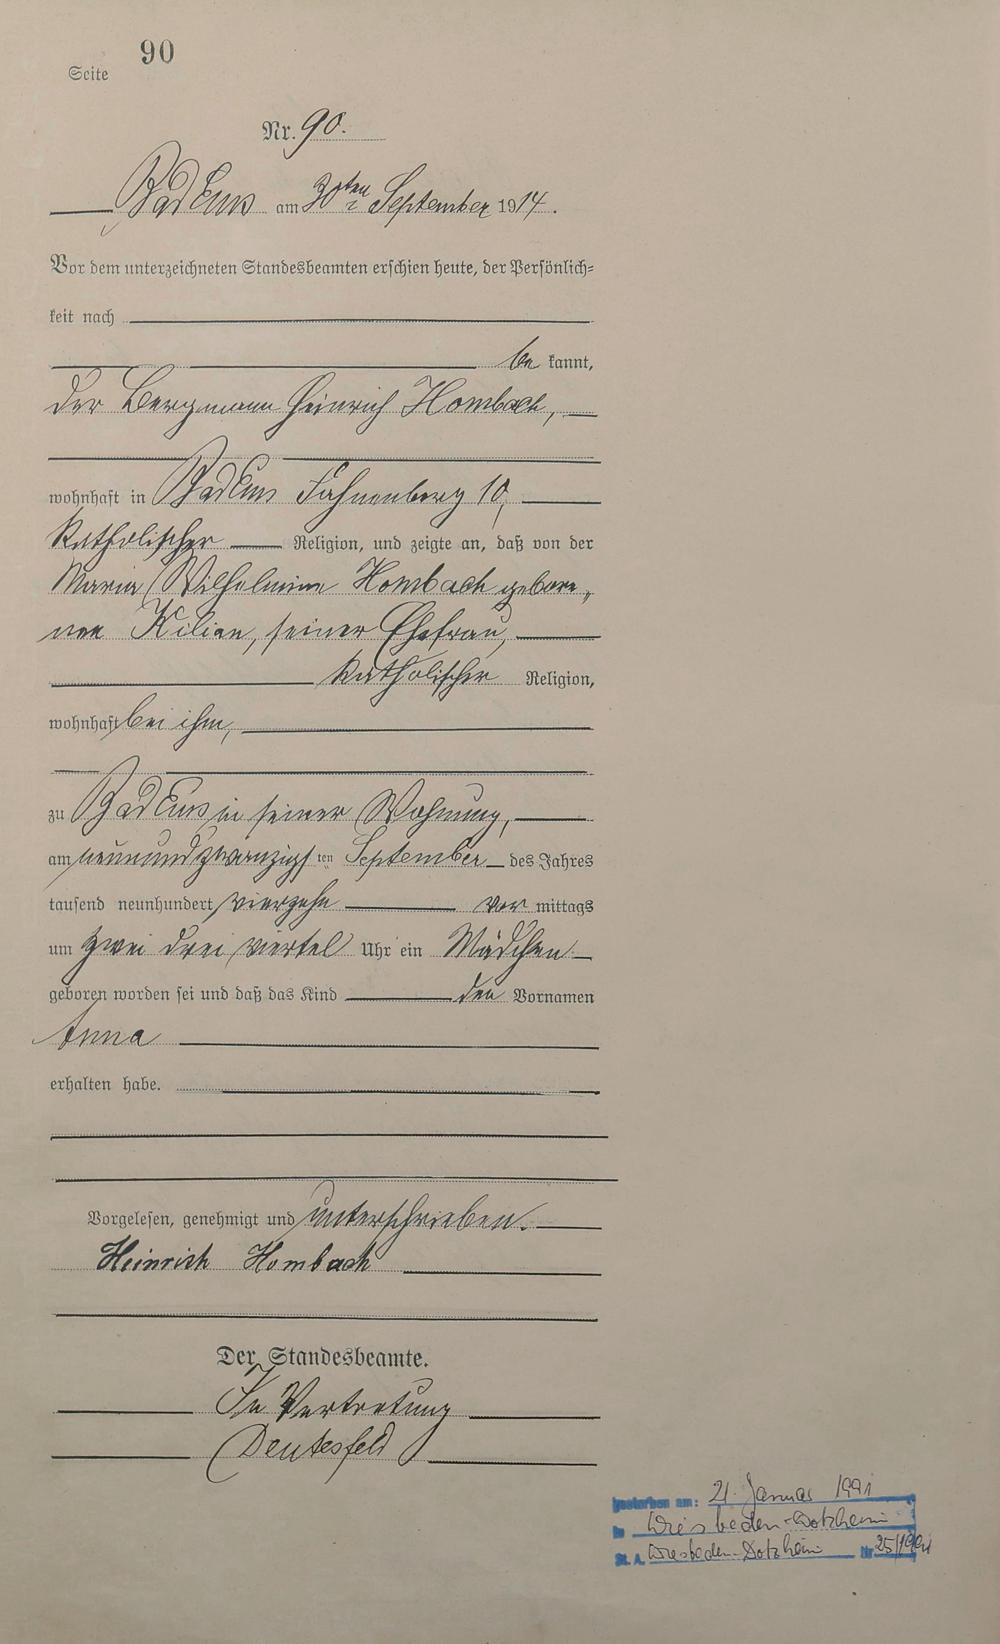 Seite 90
Nr. 90.
Bad Ems am 30ten September 1914.
Vor dem unterzeichneten Standesbeamten erschien heute, der Persönlich-
keit nach
be kannt,
der Bergmann Heinrich Hombach,
wohnhaft in Bad Ems Fahnenberg 10,
katholischer Religion, und zeigte an, daß von der
Maria Wilhelmine Hombach gebore-
nen Kilian, seiner Ehefrau,
katholischer Religion,
wohnhaft bei ihm,
zu Bad Ems in seiner Wohnung,
am neunundzwanzigsten September des Jahres
tausend neunhundert vierzehn vor mittags
um zwei drei viertel Uhr ein Mädchen
geboren worden sei und daß das Kind den Vornamen
Anna
erhalten habe.
Vorgelesen, genehmigt und unterschrieben.
Heinrich Hombach
Der Standesbeamte.
In Vertretung
Deutesfeld
gestorben am: 21. Januar 1991
in Wiesbaden-Dotzheim
St. A. Wiesbaden-Dotzheim Nr 25/1991